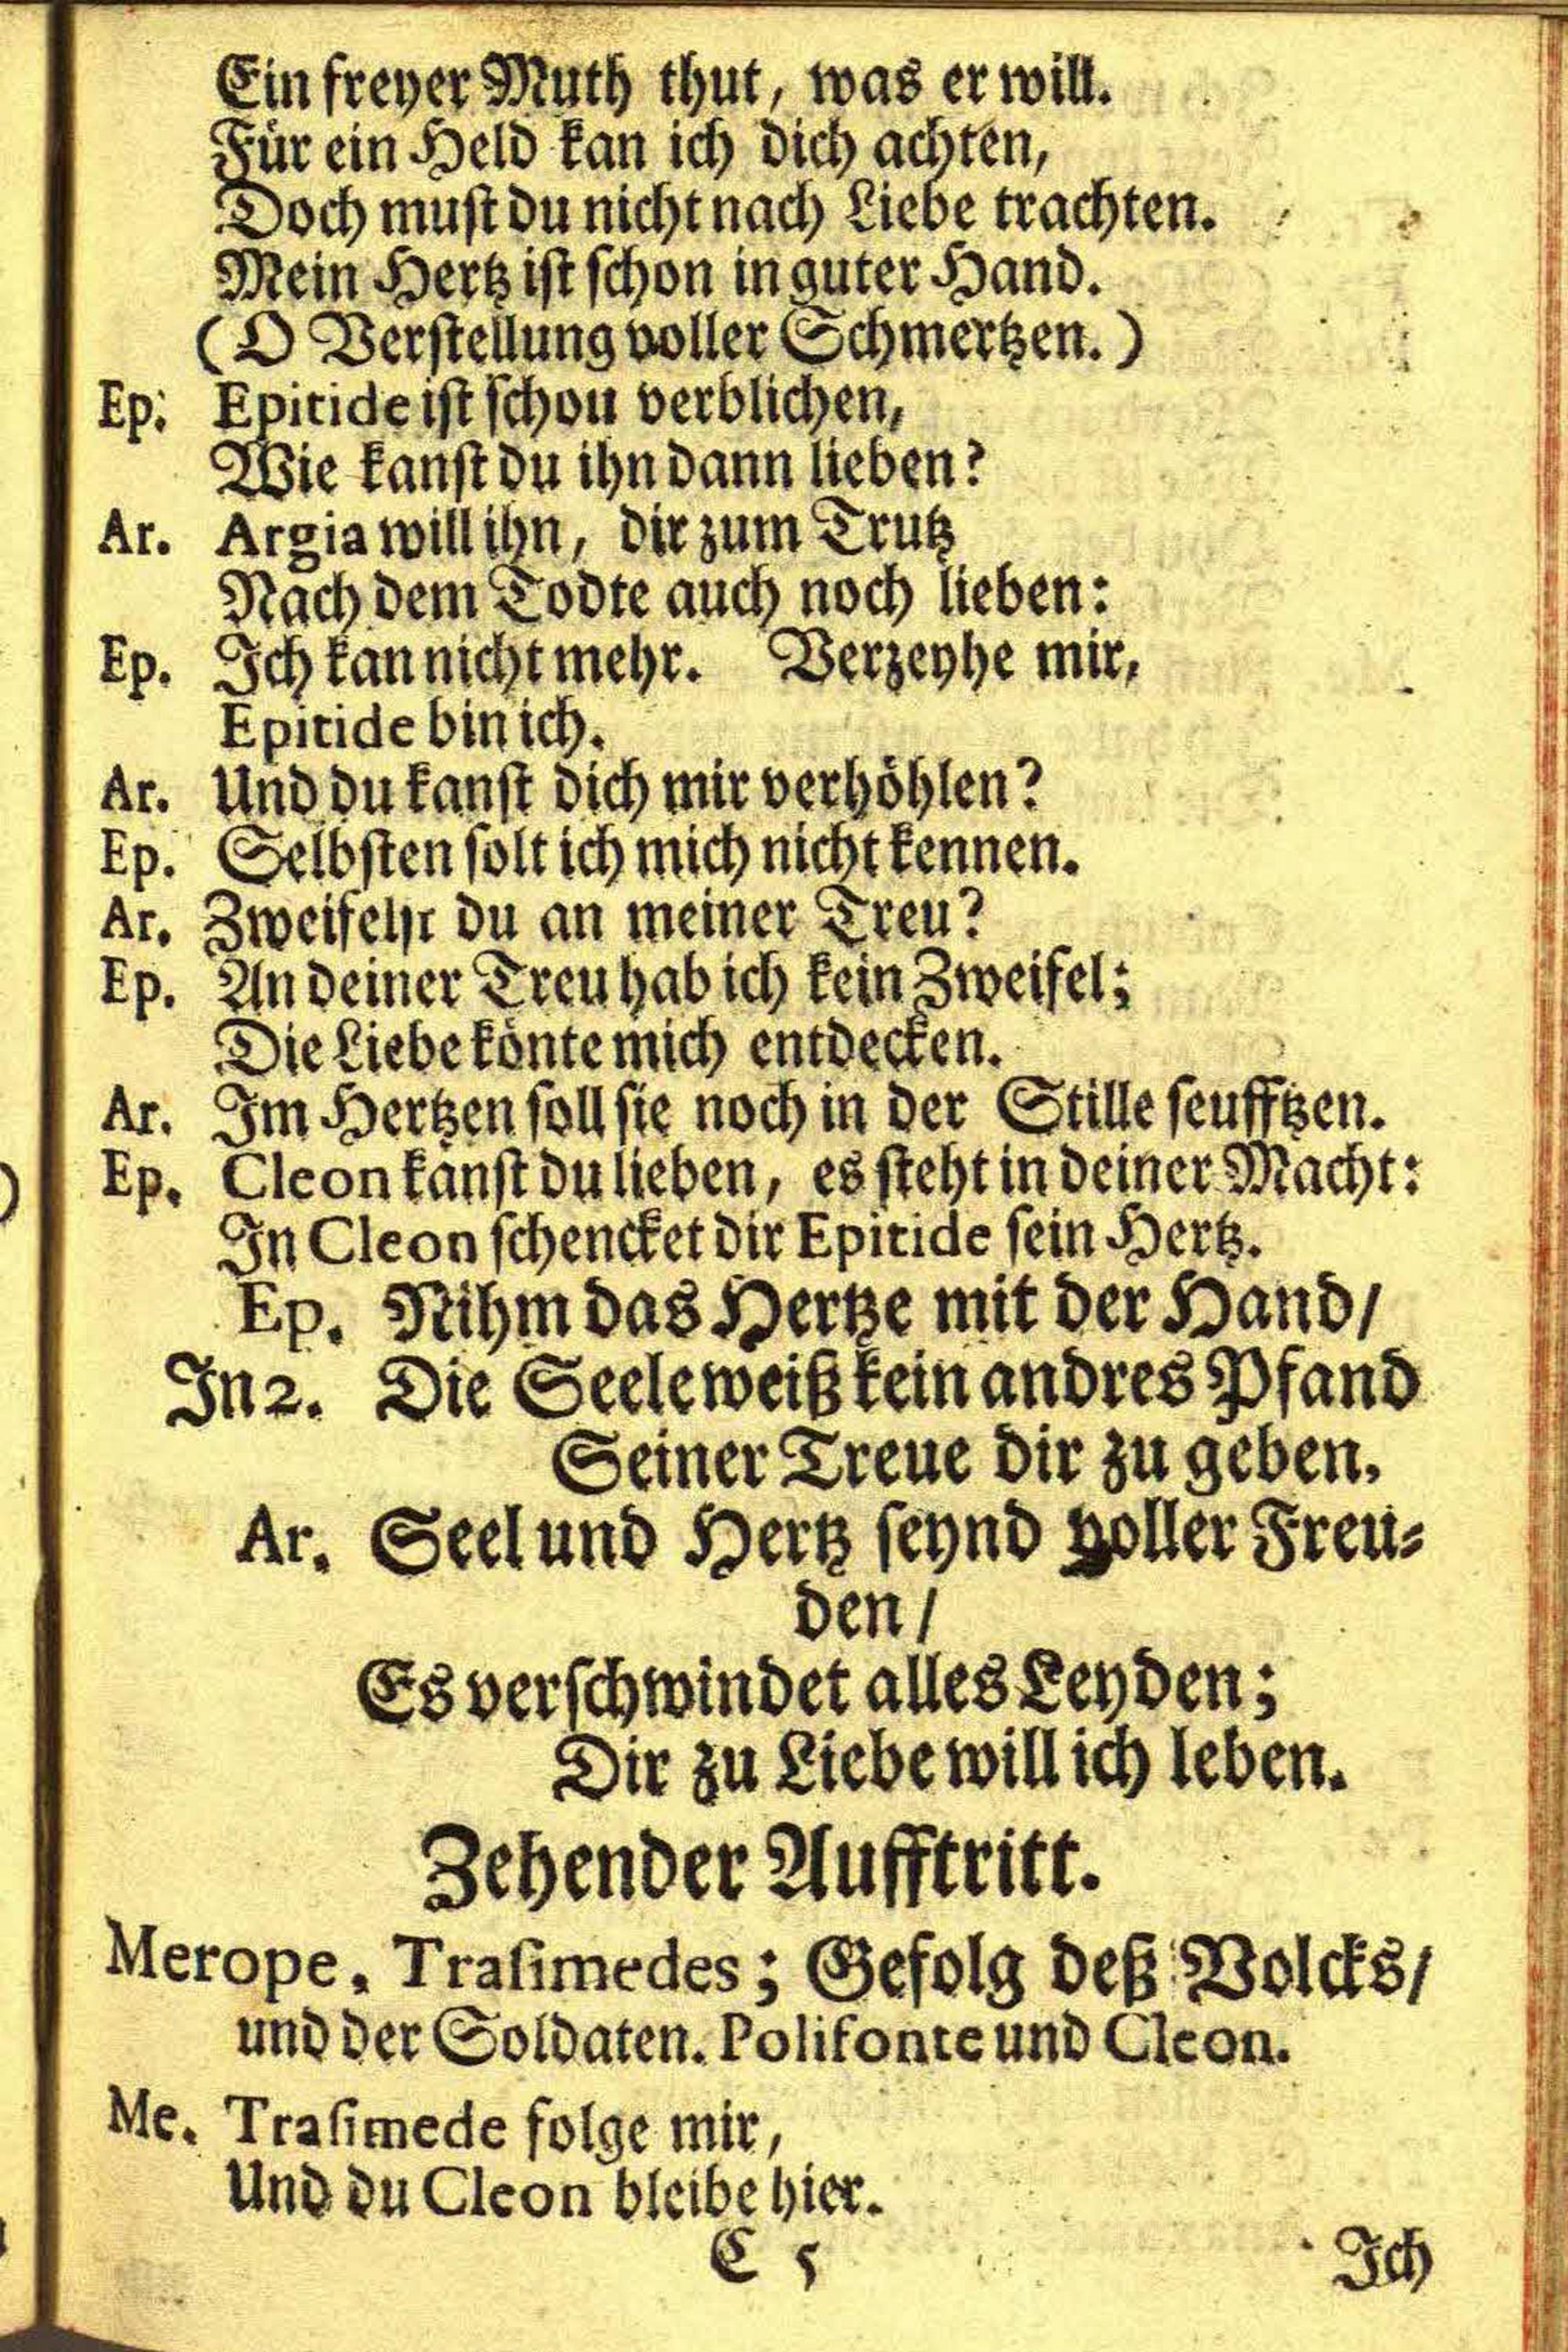 Ein freyer Muth thut, was er will.
Für ein Held kan ich dich achten,
Doch must du nicht nach Liebe trachten.
Mein Hertz ist schon in guter Hand.
(O Verstellung voller Schmertzen.)
Ep: Epitide ist schon verblichen,
Wie kanst du ihn dann lieben?
Ar. Argia will ihn, dir zum Trutz
Nach dem Todte auch noch lieben:
Ep. Ich kan nicht mehr. Verzeyhe mir,
Epitide bin ich.
Ar. Und du kanst dich mir verhöhlen?
Ep. Selbsten solt ich mich nicht kennen.
Ar. Zweifelst du an meiner Treu?
Ep. An deiner Treu hab ich kein Zweifel;
Die Liebe könte mich entdecken.
Ar. Im Hertzen soll sie noch in der Stille seufftzen.
Ep. Cleon kanst du lieben, es steht in deiner Macht:
In Cleon schencket dir Epitide sein Hertz.
Ep. Nihm das Hertze mit der Hand/
In 2. Die Seele weiß kein andres Pfand
Seiner Treue dir zu geben.
Ar. Seel und Hertz seynd voller Freu-
den/
Es verschwindet alles Leyden;
Dir zu Liebe will ich leben.
Zehender Aufftritt.
Merope, Trasimedes; Gefolg deß Volcks/
und der Soldaten. Polifonte und Cleon.
Me. Trasimede folge mir,
Und du Cleon bleibe hier.
C 5 Ich